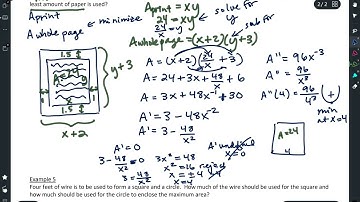 least amount of paper is used?
2 / 2
Aprint
A whole page
minimize
Aprint = xy
24 = xy
24/x = y
solve for y
sub for
A whole page = (x+2)(y+3)
1.5
A=24
1.5
y+3
x+2
A = (x+2)(24/x + 3)
A = 24 + 3x + 48/x + 6
A = 3x + 48x⁻¹ + 30
A' = 3 - 48x⁻²
A' = 3 - 48/x²
A'' = 96x⁻³
A'' = 96/x³
A''(4) = 96/4³ (+)
min at x=4
A'=0
3 - 48/x² = 0
3 = 48/x²
3x² = 48
x² = 16
x = ±4
x = 4
reject
x=0
A=24
4
Example 5
Four feet of wire is to be used to form a square and a circle. How much of the wire should be used for the square and
how much should be used for the circle to enclose the maximum area?